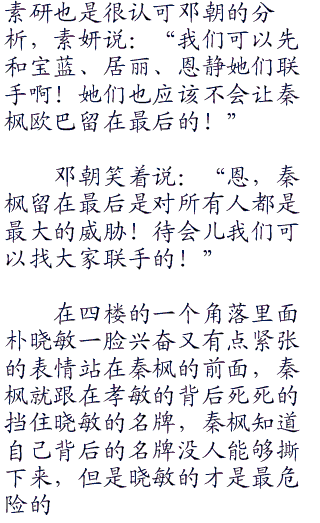 素研也是很认可邓朝的分
析，素妍说：“我们可以先
和宝蓝、居丽、恩静她们联
手啊！她们也应该不会让秦
枫欧巴留在最后的！”
邓朝笑着说：“恩，秦
枫留在最后是对所有人都是
最大的威胁！待会儿我们可
以找大家联手的！”
在四楼的一个角落里面
朴晓敏一脸兴奋又有点紧张
的表情站在秦枫的前面，秦
枫就跟在孝敏的背后死死的
挡住晓敏的名牌，秦枫知道
自己背后的名牌没人能够撕
下来，但是晓敏的才是最危
险的